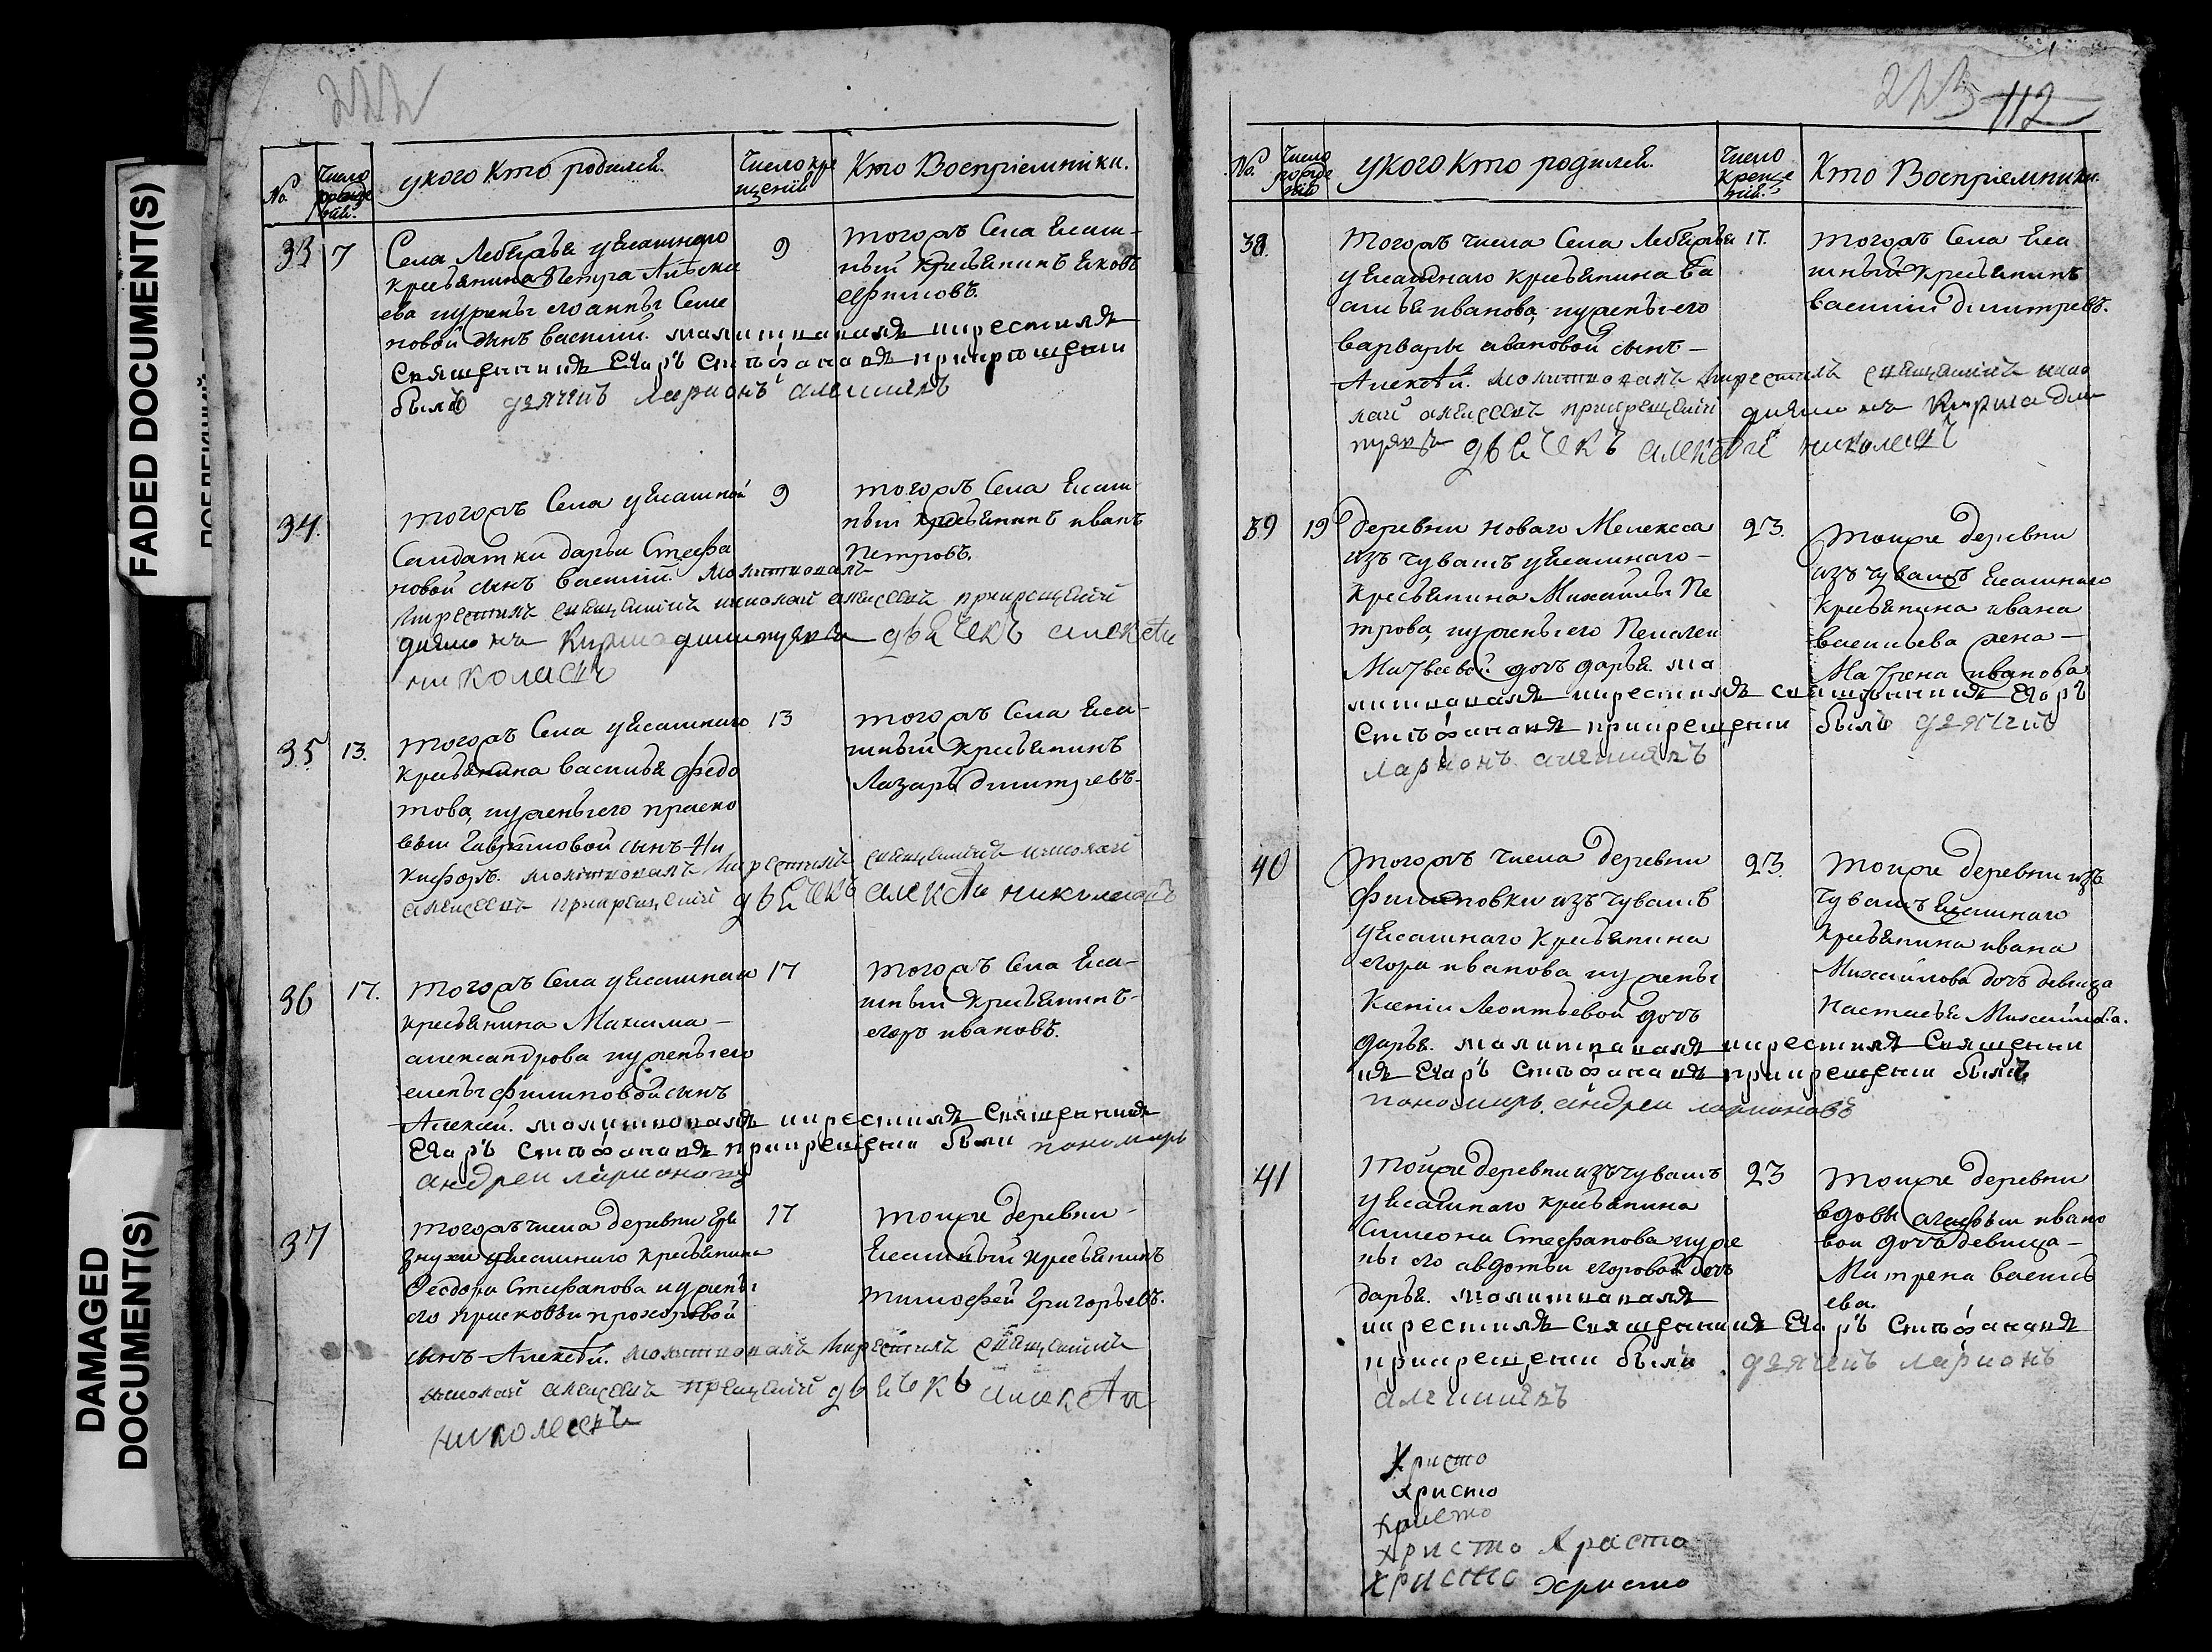 FADED DOCUMENT(S)
DAMAGED
DOCUMENT(S)
222
№
Число рожде нiй.
у кого кто родился.
Число кре щенiй
Кто Восприемники.
33
7
Села Лебяжья у Ясашнаго
крестьянина Петра Алексе
ева и жены его анны Семе
новой сынъ василий. молитвовалъ и крестилъ
Священникъ Егоръ Стефановъ при крещении
былъ дьячекъ ларионъ
9
тогожъ Села Ясаш-
ный крестьянинъ яковъ
34.
тогожъ Села у Ясашной
Салдатки дарьи Стефа
новой сынъ василий молитвовалъ
и крестилъ священникъ николай алексеевъ при крещенiи
дьяконъ Кирила димитриевъ дьячекъ алексѣи
николаевъ
9
тогожъ Села Ясаш
ный крестьянинъ иванъ
Петровъ.
35
13.
тогожъ Села у Ясашнаго
крестьянина василья федо
това, и жены его праско
вьи Гавриловой сынъ Ни
кифоръ. молитвовалъ и крестилъ священникъ николай
алексеевъ при крещенiй дьячекъ алексѣи николаевъ
13
тогожъ Села Яса-
шный крестьянинъ
Лазарь димитрiевъ.
36
17.
тогожъ Села у Ясашнаго
крестьянина Максима
александрова и жены его
елены филиповой сынъ
Алексѣй. молитвовалъ и крестилъ Священникъ
Егоръ Стефановъ при крещении былъ пономарь
андреи ларионовъ
17
тогожъ Села Яса-
шный крестьянинъ-
егоръ ивановъ.
37
тогожъ числа деревни Гря
знухи у Ясашнаго крестьянина
Феодора Стефанова и жены
его прасковьи прохоровой
сынъ Алексѣй. молитвовалъ и крестилъ священникъ
николай алексеевъ при крещенiй дьячекъ алексѣи
николаевъ
17
тойже деревни-
Ясашный крестьянинъ
тимофей Григорьевъ.
223
112
№
Число рожде нiю
у кого кто родился.
Число Креще нiй.
Кто Восприемники.
38.
тогожъ числа Села Лебяжья
у Ясашнаго крестьянина Ва
силья иванова, и жены его
варвары ивановой сынъ-
Алексѣй. молитвовалъ и крестилъ священникъ нико
лай алексеевъ при крещенiй дьяконъ Кирила дми
триевъ дьячекъ алексѣй николаевъ
17.
тогожъ Села Яса
шный крестьянинъ
василий димитревъ.
39
19
деревни новаго Мелекеса
изъ чувашъ у Ясашнаго-
Крестьянина Михайлы Пе
трова, и жены его Пелагеи
Матвеевой дочь дарья. мо
литвовалъ и крестилъ священникъ Егоръ
Стефановъ при крещении былъ дьячекъ
ларионъ
23.
тойже деревни
изъ чувашъ Ясашнаго
крестьянина ивана
васильева жена-
Матрена иванова
40
тогожъ числа деревни
Филиповки изъ чувашъ
у Ясашнаго Крестьянина
егора иванова и жены
Ксенiи Леонтьевой дочь
дарья. молитвовалъ и крестилъ Священни
къ Егоръ Стефановъ при крещении былъ
пономарь андреи ларионовъ
23.
тойже деревни изъ
чувашъ Ясашнаго
крестьянина ивана
Михайлова дочь девица
настасья Михайлова.
41
тойже деревни изъ чувашъ
у Ясашнаго крестьянина
Симеона Стефанова и же
ны его авдотьи егоровой дочь
дарья. молитвовалъ
и крестилъ Священникъ Егоръ Стефановъ
при крещении былъ дьячекъ ларионъ
23
тойже деревни
вдовы агафьи ивано
вой дочь девица-
Матрена василь
ева.
Христо
христо
христо
христо христо
христо христо